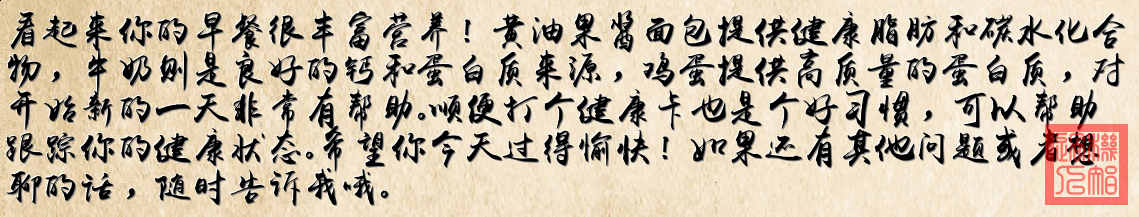 看起来你的早餐很丰富营养！黄油果酱面包提供健康脂肪和碳水化合
物，牛奶则是良好的钙和蛋白质来源，鸡蛋提供高质量的蛋白质，对
开始新的一天非常有帮助。顺便打个健康卡也是个好习惯，可以帮助
跟踪你的健康状态。希望你今天过得愉快！如果还有其他问题或者想
聊的话，随时告诉我哦。